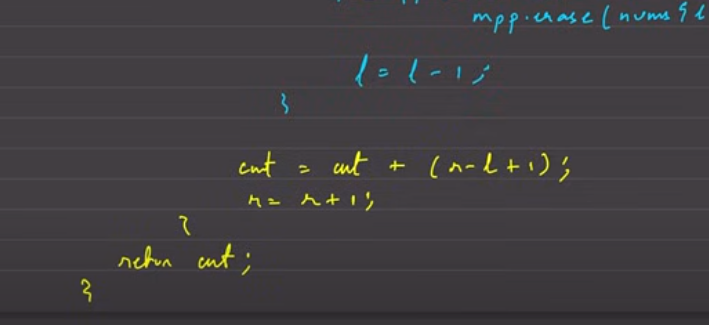 mpp.erase(nums[l
l = l - 1;
}
cnt = cnt + (r-l+1);
r = r+1;
}
return cnt;
}